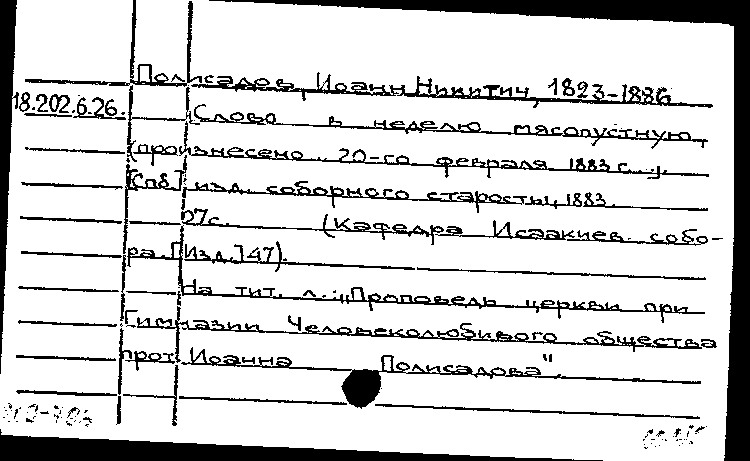 Полисадов, Иоанн Никитич, 1823-1886
18.202.6.26. Слово в неделю мясопустную,
(произнесено .. 20-го февраля 1883 г...).
[Спб] изд. соборного старосты, 1883.
27с. (Кафедра Исаакиев. собо-
ра. [Изд.] 47).
На тит. л.: „Проповедь церкви при
Гимназии Человеколюбивого общества
прот. Иоанна Полисадова".